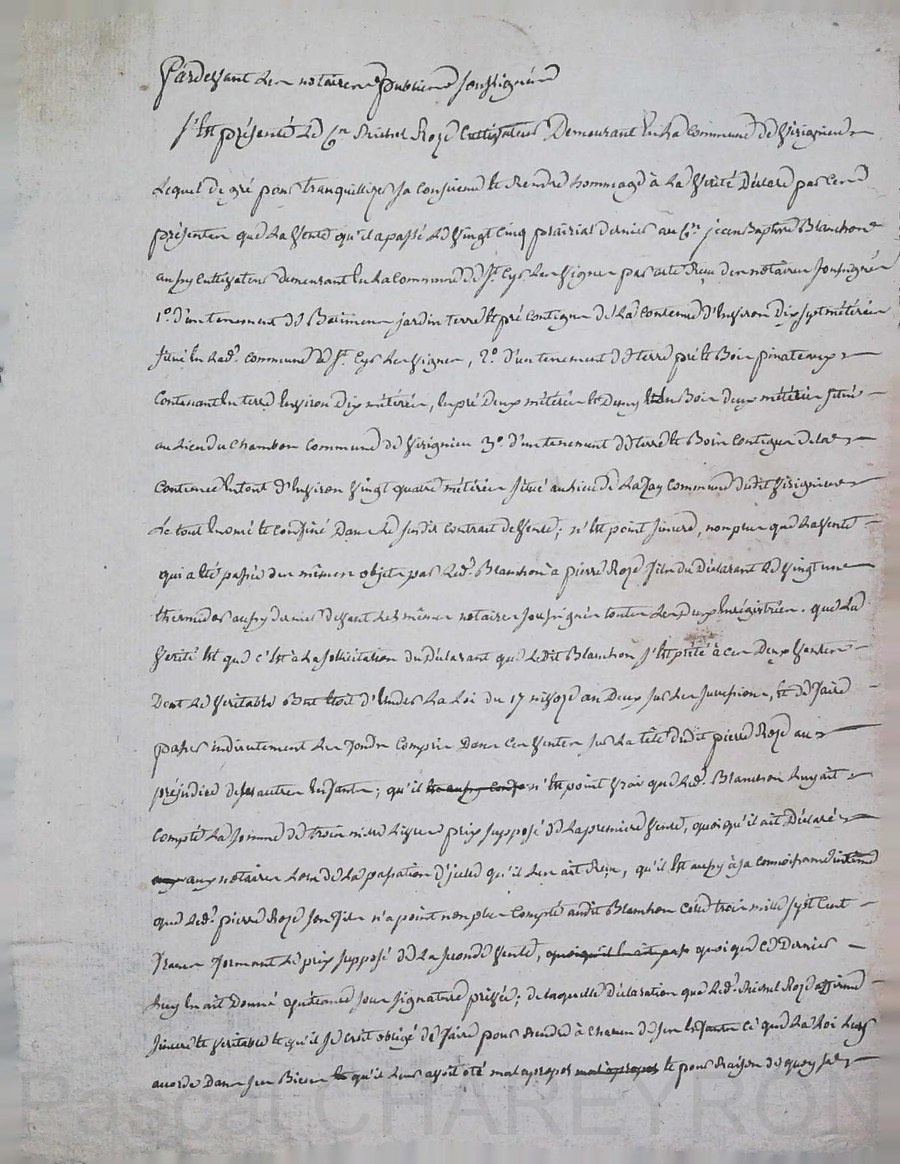 Pardevant les notaires publics soussignés
s'est présenté le Cen Michel Roze Cultivateur Demeurant en la Commune de Virignieu
Lequel de gré pour tranquilliser sa conscience et Rendre hommage à la Verité Déclare par ces
présentes que la Vente qu'il a passé le Vingt Cinq prairial dernier au Cen jean Baptiste Blanchon
aussy Cultivateur demeurant en la Commune de St. Cyr les Vignes par acte Reçu des notaires soussignés
1.o d'un tenement de Batimens jardin terre et pré Contigus de la Contenue d'Environ Dix sept métérées
situé en lade. commune de St. Cyr les Vignes, 2.o d'un tenement de terre pré et Bois pinateaux
Contenant en terre Environ Dix métérées, en pré Deux métérées et Demy et en Bois deux métérées situé
au Lieu du Chambon Commune de Virignieu 3.o d'un tenement de terre et Bois Contigus de la
Contenue en tout d'Environ Vingt quatre métérées situé au Lieu de Lazay Commune dudit Virignieu
Le tout Enoncé et Confiné Dans le susdit contrat de Vente; n'Est point sincere, non plus que la Vente
qui a été passée des mêmes objets par led. Blanchon à pierre Roze fils du Déclarant le Vingt un
thermidor aussy dernier devant les mêmes notaires soussignés toutes les deux Enrégistrées. que la
Verité Est que c'Est à la sollicitation du Déclarant que ledit Blanchon s'Est prété à ces Deux Ventes
Dont le Veritable But étoit d'Eluder la Loi du 17 nivose an Deux sur les successions, Et de faire
passer indirectement les fonds Compris Dans ces Ventes sur la tête dudit pierre Roze au
préjudice de ses autres Enfants; qu'il est aussy n'Est point Vrai que led. Blanchon luy ait
Compté la somme de trois mille Livres prix supposé de la premiere Vente, quoi qu'il ait Déclaré
aux notaires Lors de la passation d'icelle qu'il les ait Reçu, qu'il Est aussy à sa connoissance intime
que led. pierre Roze son fils n'a point non plus Compté audit Blanchon Celle de trois mille sept Cent
francs formant le prix supposé de la seconde Vente, quoiqu'il en ait pas quoi que ce Dernier
Luy en ait Donné quittance sous signature privée; de laquelle Déclaration que led. Michel Roze affirme
sincere et Veritable et qu'il se croit obligé de faire pour Rendre à chacun de ses Enfants ce que la Loi Leur
accorde Dans ses Biens et qu'il Leur avoit oté mal apropos mal apropos et pour Raison de quoy
Pascal CHAREYRON